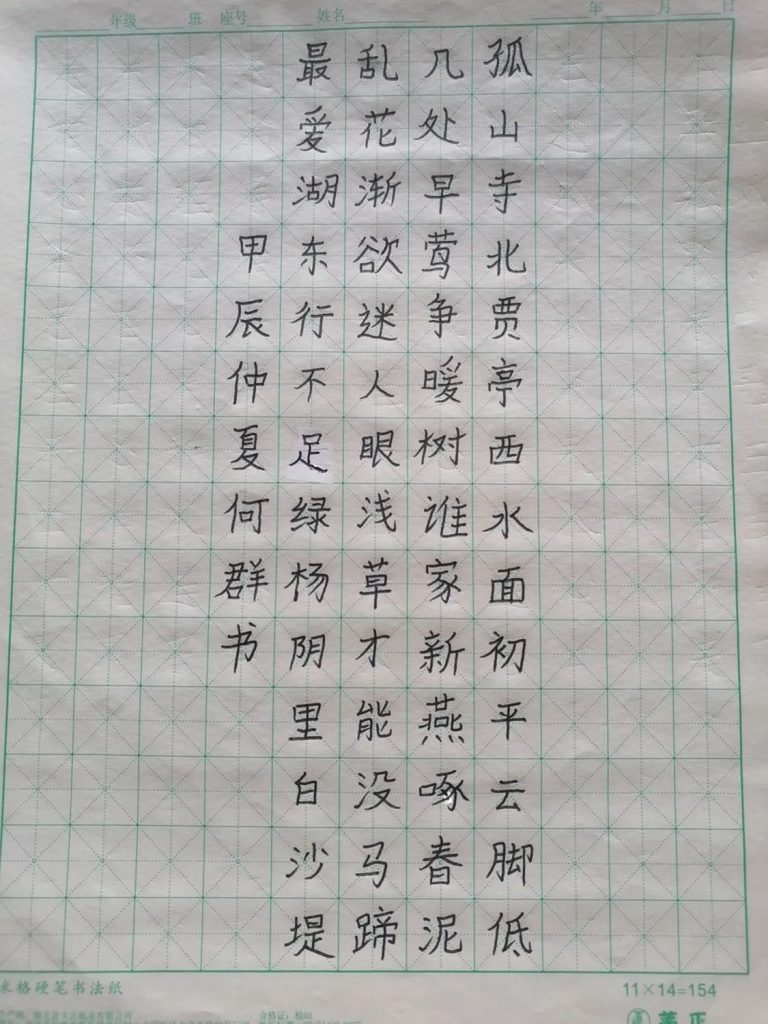 年级 班 座号 姓名 年 月 日
孤山寺北贾亭西水面初平云脚低
几处早莺争暖树谁家新燕啄春泥
乱花渐欲迷人眼浅草才能没马蹄
最爱湖东行不足绿杨阴里白沙堤
甲辰仲夏何群书
米格硬笔书法纸
11×14=154